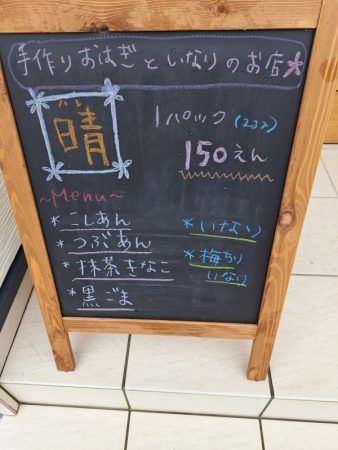 手作りおはぎといなりのお店★
晴
1パック(2コ入)
150えん
~Menu~
*こしあん
*つぶあん
*抹茶きなこ
*黒ごま
*いなり
*梅ちりいなり